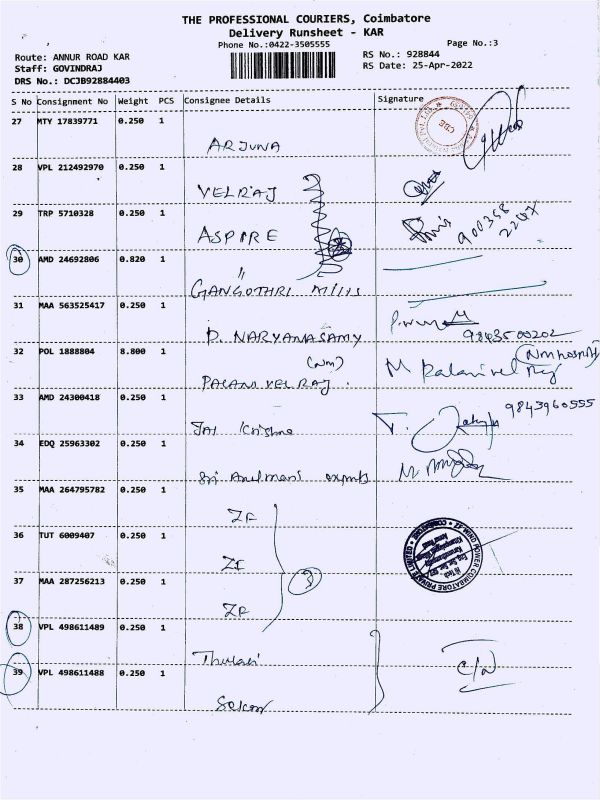 THE PROFESSIONAL COURIERS, Coimbatore
Delivery Runsheet - KAR
Phone No.:0422-3505555
Page No.:3
Route: ANNUR ROAD KAR
RS No.: 928844
Staff: GOVINDRAJ
RS Date: 25-Apr-2022
DRS No.: DCJB92884403
S No Consignment No Weight PCS Consignee Details Signature
27 MTY 17839771 0.250 1
ARJUNA
28 VPL 212492970 0.250 1
VELRAJ
29 TRP 5710328 0.250 1
ASPIRE
30 AMD 24692806 0.820 1
GANGOTHRI
31 MAA 563525417 0.250 1
P. NARYANASAMY
9843500202
32 POL 1888804 8.800 1
(Nm)
PALANIVELRAJ
33 AMD 24300418 0.250 1
9843960555
Jai Krishna
34 EDQ 25963302 0.250 1
Sri
35 MAA 264795782 0.250 1
ZF
36 TUT 6009407 0.250 1
ZF
37 MAA 287256213 0.250 1
3
ZF
38 VPL 498611489 0.250 1
Thulasi
39 VPL 498611488 0.250 1
C/N